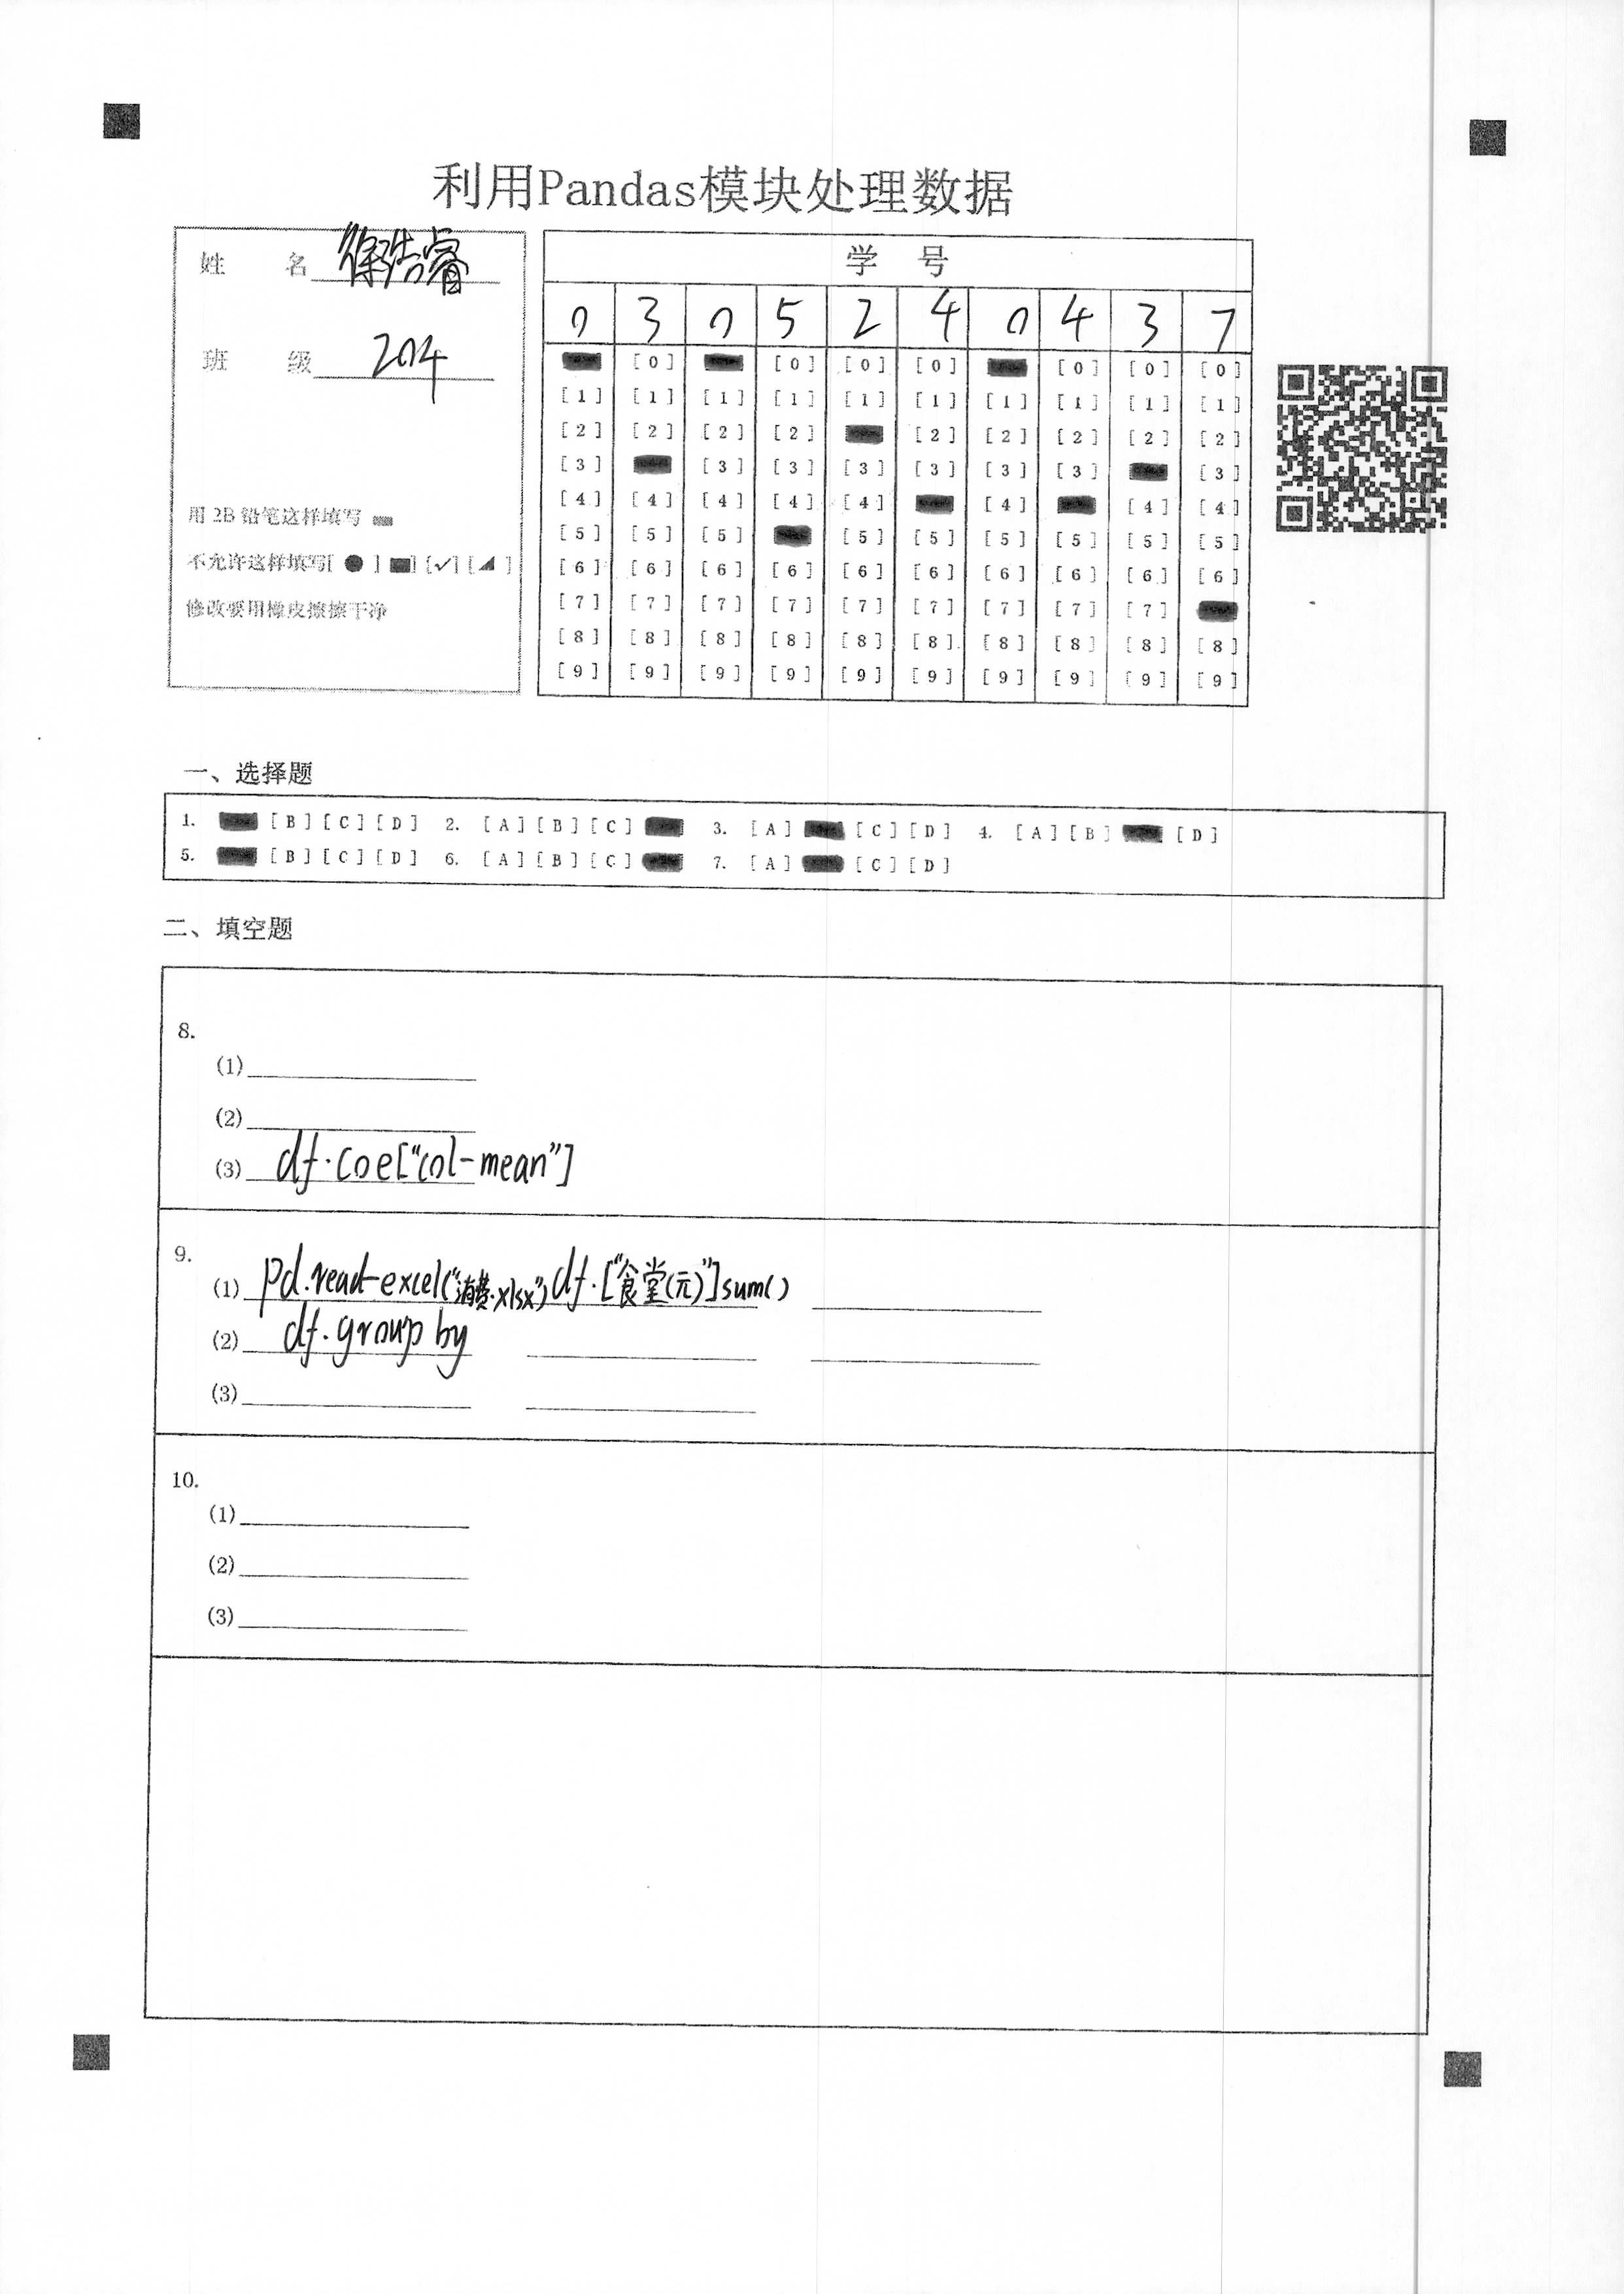 利用Pandas模块处理数据
姓 名 徐浩睿
班 级 204
用 2B 铅笔这样填写
不允许这样填写[ ● ] [■] [✓] [◢ ]
修改要用橡皮擦擦干净
学 号
0 3 0 5 2 4 0 4 3 7
[0] [0] [0] [0] [0] [0]
[1] [1] [1] [1] [1] [1] [1] [1] [1] [1]
[2] [2] [2] [2] [2] [2] [2] [2] [2]
[3] [3] [3] [3] [3] [3] [3] [3]
[4] [4] [4] [4] [4] [4] [4] [4]
[5] [5] [5] [5] [5] [5] [5] [5] [5]
[6] [6] [6] [6] [6] [6] [6] [6] [6] [6]
[7] [7] [7] [7] [7] [7] [7] [7] [7]
[8] [8] [8] [8] [8] [8] [8] [8] [8] [8]
[9] [9] [9] [9] [9] [9] [9] [9] [9] [9]
一、选择题
1. [B] [C] [D] 2. [A] [B] [C] 3. [A] [C] [D] 4. [A] [B] [D]
5. [B] [C] [D] 6. [A] [B] [C] 7. [A] [C] [D]
二、填空题
8.
(1)
(2)
(3) df.coe["col-mean"]
9.
(1) pd.read-excel("消费.xlsx") df.["食堂(元)"]sum()
(2) df.group by
(3)
10.
(1)
(2)
(3)